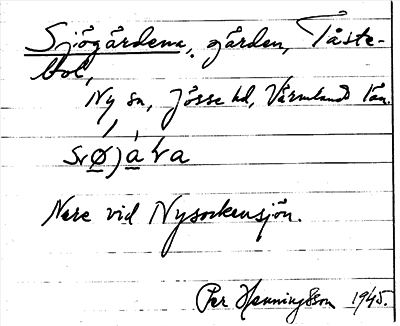 Sjögårdena, gården, Tåste-
bol,
Ny sn, Jösse hd, Värmlands län.
Nere vid Nysockensjön.
Per Henningsson 1945.